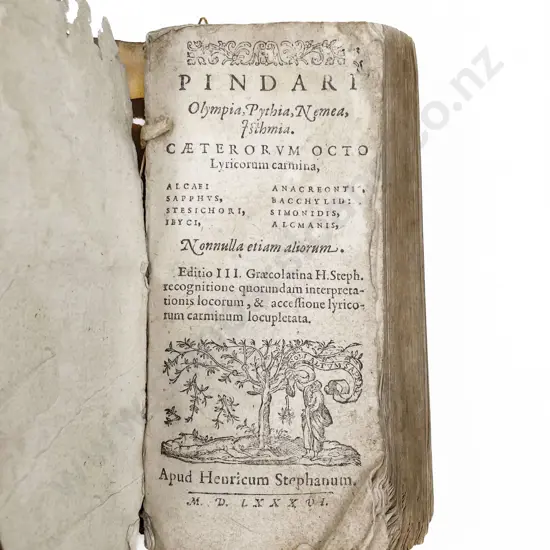 PINDARI
Olympia, Pythia, Nemea,
Isthmia.
CÆTERORVM OCTO
Lyricorum carmina,
ALCAEI ANACREONTIS,
SAPPHVS, BACCHYLIDIS,
STESICHORI, SIMONIDIS,
IBYCI, ALCMANIS,
Nonnulla etiam aliorum.
Editio III. Græcolatina H. Steph.
recognitione quorundam interpreta-
tionis locorum, & accessione lyrico-
rum carminum locupletata.
Apud Henricum Stephanum.
M. D. LXXXVI.